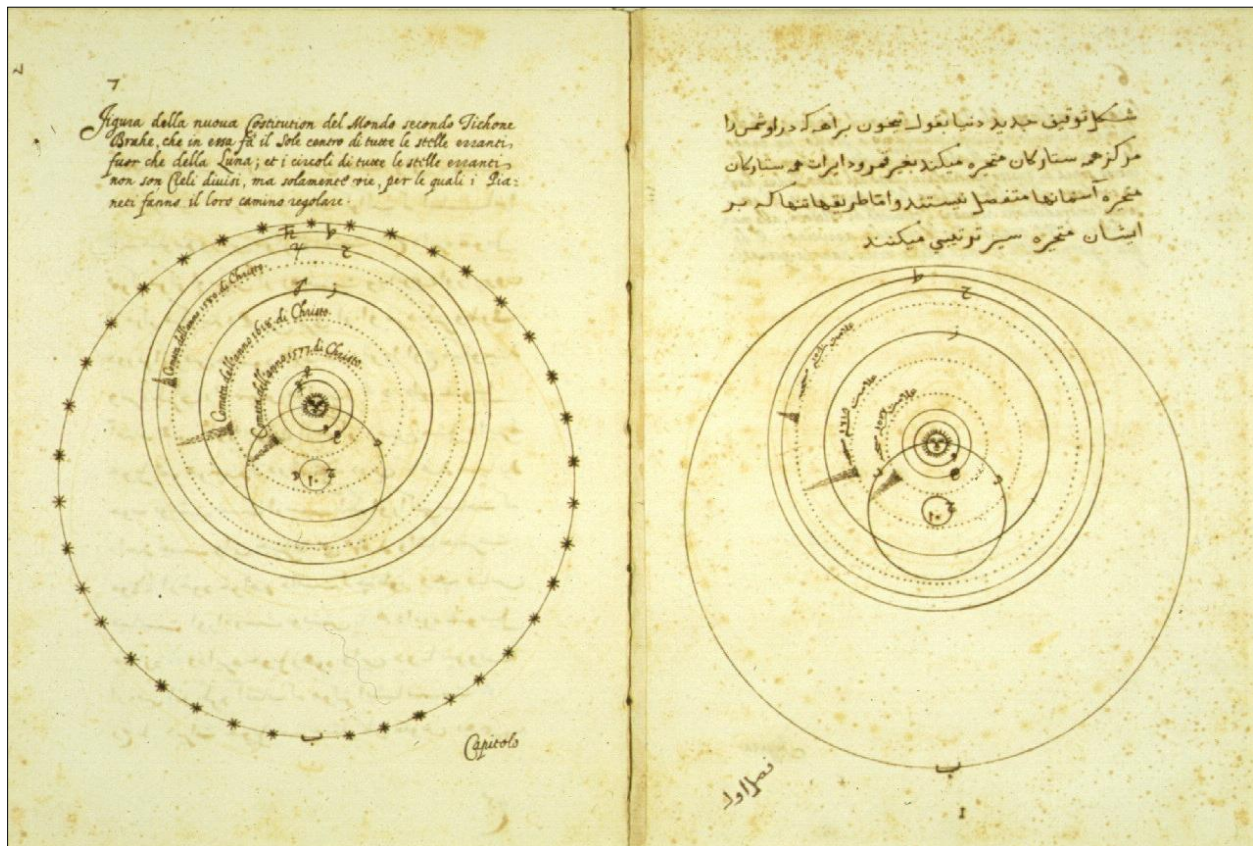 Figura della nuoua Costitution del Mondo secondo Tichone
Brahe, che in essa fà il Sole centro di tutte le stelle erranti,
fuor che della Luna; et i circoli di tutte le stelle erranti
non son Cieli diuisi, ma solamente vie, per le quali i Pia-
neti fanno il loro camino regolare.
♄ ط
♃ ح
♂ ز
Cometa dell'anno 1580 di Christo.
Cometa dell'anno 1618 di Christo.
Cometa dell'anno 1577 di Christo.
ب
Capitolo
شکل جدید دنیا بقول تیخون براهه که در او شمس را
مرکز همه ستارکان متحیره میکند بغیر قمر و دایرات همه ستارکان
متحیره آسمانها منفصل نیستند و اما طریقها تنها که بر
ایشان متحیره سیر میکنند
ط
ح
ز
ب
فصل اول
1